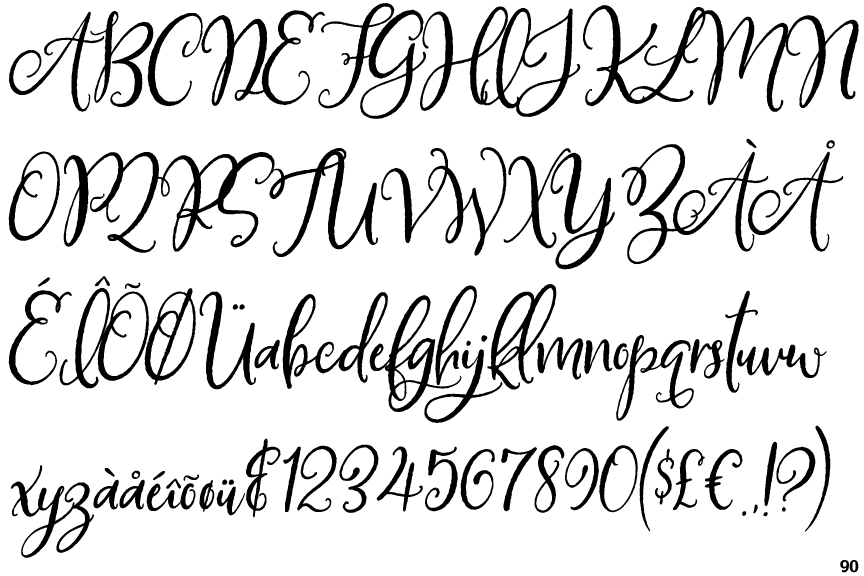 ABCDEFGHIJKLMN
OPQRSTUVWXYZÀÅ
ÉÎÕØÜabcdefghijklmnopqrstuvw
xyzàåéîõøü&1234567890($£€.,!?)
90